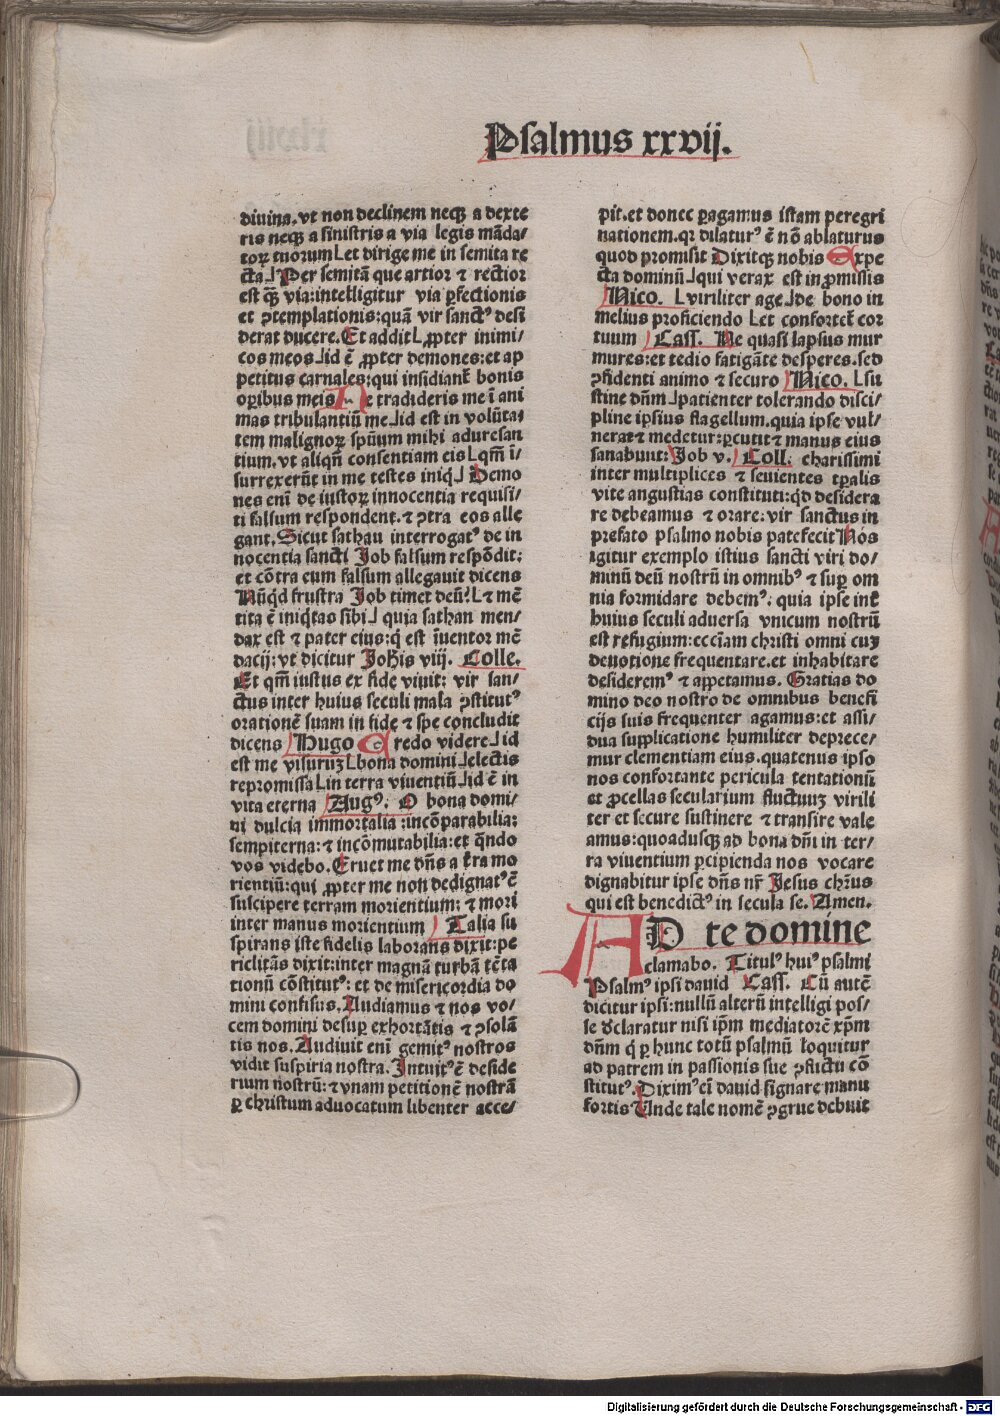 Psalmus xxvij.
diuina. vt non declinem neqꝫ a dexte
ris neqꝫ a sinistris a via legis mãda/
torꝝ tuorum L et dirige me in semita re
cta ⅃ Per semitã que artior ⁊ rectior
est qꝫ via: intelligitur via ꝑfectionis
et ꝯtemplationis: quã vir sanctꝰ desi
derat ducere. Et addit L ꝓpter inimi/
cos meos ⅃ id ẽ ꝓpter demones: et ap
petitus carnales: qui insidiant̃ bonis
oꝑibus meis. Ne tradideris me ĩ ani
mas tribulantiũ me ⅃ id est in volũta/
tem malignorꝝ spũum mihi aduersan
tium. vt aliqñ consentiam eis L qm̃ ĩ/
surrexerũt in me testes iniq̃ ⅃ Demo
nes enĩ de iustorꝝ innocentia requisi/
ti falsum respondent. ⁊ ꝯtra eos alle
gant. Sicut sathan interrogatꝰ de in
nocentia sancti Job falsum respõdit:
et cõtra eum falsum allegauit dicens
Nũqd̃ frustra Job timet deũ? L ⁊ mẽ
tita ẽ iniq̃tas sibi ⅃ quia sathan men/
dax est ⁊ pater eius: q̃ est ĩuentor mẽ
dacij: vt dicitur Joh̃is viij. Colle.
Et qm̃ iustus ex fide viuit: vir san/
ctus inter huius seculi mala ꝯstitutꝰ
orationẽ suam in fide ⁊ spe concludit
dicens Hugo Credo videre ⅃ id
est me visuruꝫ L bona domini ⅃ electis
repromissa L in terra viuentiũ ⅃ id ẽ in
vita eterna Augꝰ. O bona domi/
ni dulcia immortalia: incõparabilia:
sempiterna: ⁊ incõmutabilia: et qñdo
vos videbo. Eruet me dñs a t̃ra mo
rientiũ: qui ꝓpter me non dedignatꝰ ẽ
suscipere terram morientium: ⁊ mori
inter manus morientium Talia su
spirans iste fidelis laborans dixit: pe
riclitãs dixit: inter magnã turbã tẽta
tionũ cõstitutꝰ: et de misericordia do
mini confisus. Audiamus ⁊ nos vo/
cem domini desuꝑ exhortãtis ⁊ ꝯsolã
tis nos. Audiuit enĩ gemitꝰ nostros
vidit suspiria nostra. Intuitꝰ ẽ deside
rium nostrũ: ⁊ vnam petitionẽ nostrã
ꝑ christum aduocatum libenter acce/
pit. et donec ꝑagamus istam peregri
nationem. qꝛ dilaturꝰ ẽ nõ ablaturus
quod promisit Dixitqꝫ nobis Expe
cta dominũ ⅃ qui verax est in ꝓmissis
Nico. L viriliter age ⅃ de bono in
melius proficiendo L et confortet̃ cor
tuum Cass. Ne quasi lapsus mur
mures: et tedio fatigãte desperes. sed
ꝯfidenti animo ⁊ securo Nico. L su
stine dñm ⅃ patienter tolerando disci/
pline ipsius flagellum. quia ipse vul/
nerat ⁊ medetur: ꝑcutit ⁊ manus eius
sanabunt: Job v. Coll. charissimi
inter multiplices ⁊ seuientes tꝑalis
vite angustias constituti: qd̃ desidera
re debeamus ⁊ orare: vir sanctus in
prefato psalmo nobis patefecit Nos
igitur exemplo istius sancti viri do/
minũ deũ nostrũ in omnibꝰ ⁊ suꝑ om
nia formidare debemꝰ: quia ipse int̃
huius seculi aduersa vnicum nostrũ
est refugium: ecc̃iam christi omni cuꝫ
deuotione frequentare. et inhabitare
desideremꝰ ⁊ appetamus. Gratias do
mino deo nostro de omnibus benefi
cijs suis frequenter agamus: et assi/
dua supplicatione humiliter deprece/
mur clementiam eius. quatenus ipso
nos confortante pericula tentationũ
et ꝓcellas secularium fluctuuꝫ virili
ter et secure sustinere ⁊ transire vale
amus: quoadusqꝫ ad bona dñi in ter/
ra viuentium ꝑcipienda nos vocare
dignabitur ipse dñs nr̃ Jesus chr̃us
qui est benedictꝰ in secula se. Amen.
AD te domine
clamabo. Titulꝰ huiꝰ psalmi
Psalmꝰ ipsi dauid Cass. Cũ autẽ
dicitur ipsi: nullũ alterũ intelligi pos/
se d̃claratur nisi ip̃m mediatorẽ xp̃m
dñm q̃ ꝑ hunc totũ psalmũ loquitur
ad patrem in passionis sue ꝯflictu cõ
stitutꝰ. Diximꝰ eĩ dauid signare manu
fortis Unde tale nomẽ ꝯgrue debuit
Digitalisierung gefördert durch die Deutsche Forschungsgemeinschaft - DFG